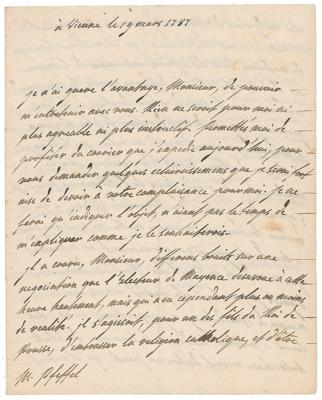 à Vienne le 19 mars 1787
je n'ai guere l'avantage, Monsieur, de pouvoir
m'entretenir avec vous. Rien ne seroit pour moi ni
plus agreable ni plus instructif. Permettés moi de
profiter du courier que j'expedie aujourd'hui, pour
vous demander quelques eclaircissemens que je serai fort
aise de devoir à votre complaisance pour moi. je ne
ferai qu'indiquer l'objet, n'aiant pas le temps de
m'expliquer comme je le souhaiterois.
Il a couru, Monsieur, differens bruits sur une
negociation que l'Electeur de Mayence desavoue à cette
heure hautement, mais qui a eu cependant plus ou moins
de realité. il s'agissoit, pour un des fils du Roi de
Prusse, d'embrasser la religion catholique, et d'être
M. Pfeffel